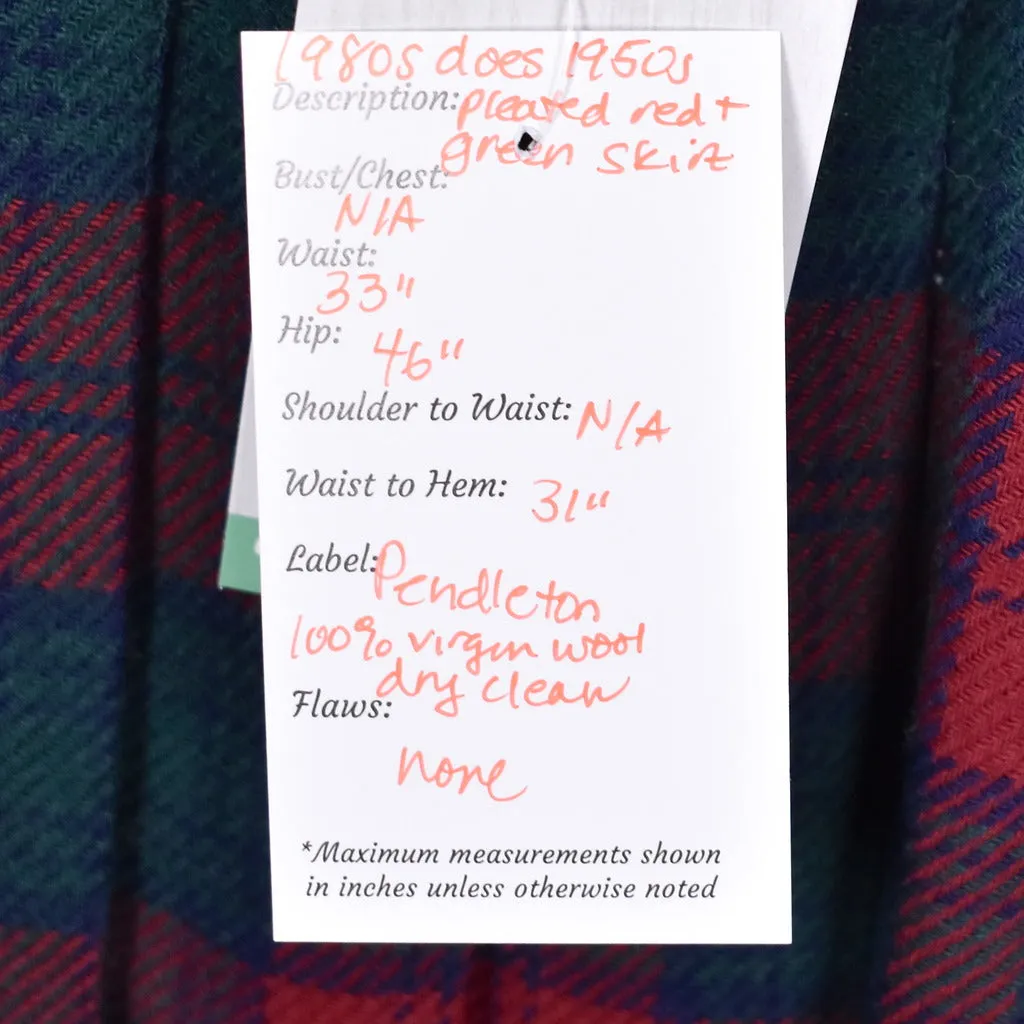 1980s does 1950s
Description: pleated red +
green skirt
Bust/Chest:
N/A
Waist:
33"
Hip:
46"
Shoulder to Waist: N/A
Waist to Hem: 31"
Label: Pendleton
100% virgin wool
dry clean
Flaws:
none
*Maximum measurements shown
in inches unless otherwise noted